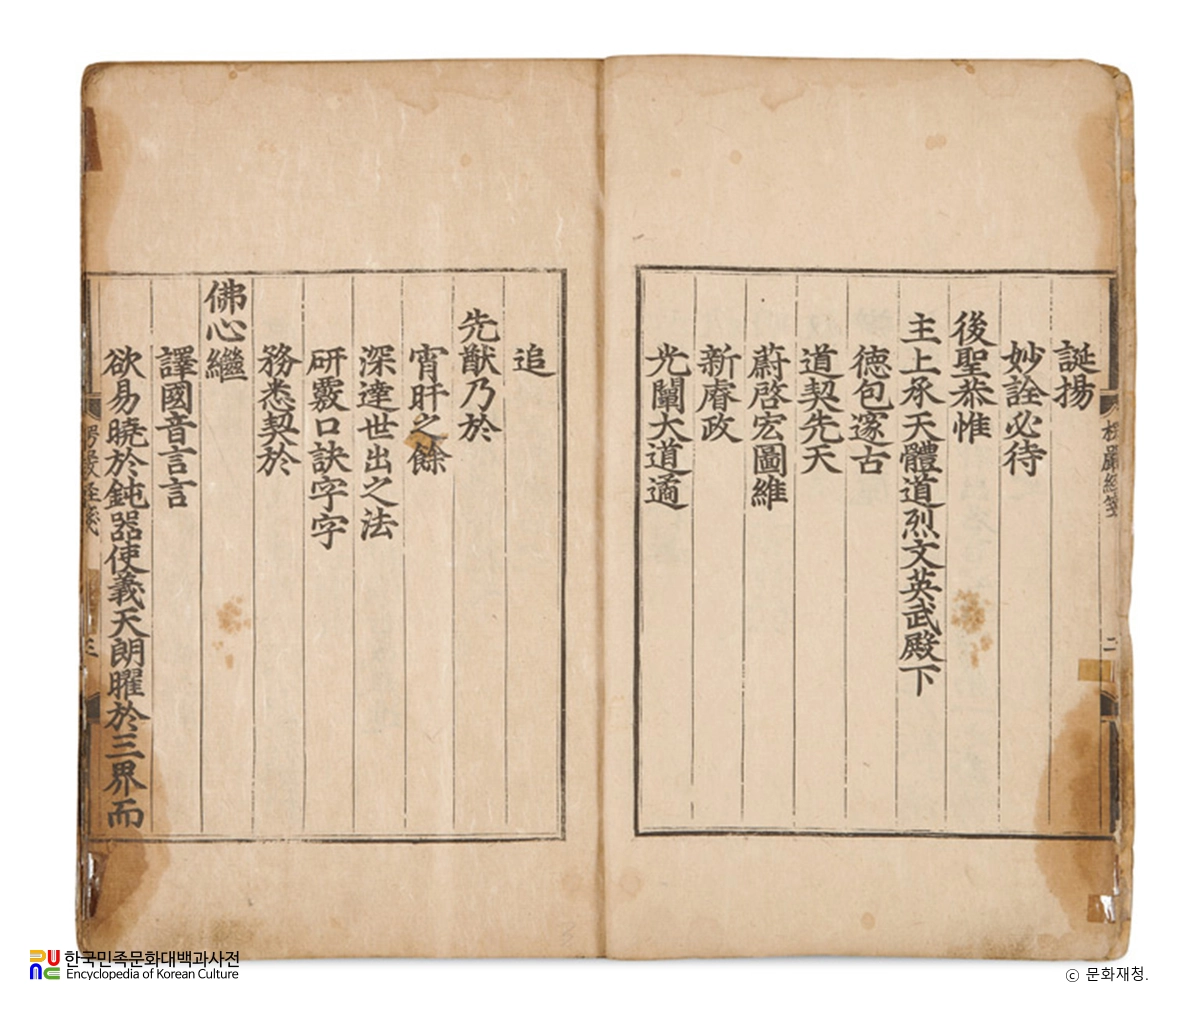 誕揚
妙詮必待
後聖恭惟
主上承天體道烈文英武殿下
德包邃古
道契先天
蔚啓宏圖維
新庶政
光闡大道適
追
先猷乃於
宵旰之餘
深達世出之法
研覈口訣字字
務悉契於
佛心繼
譯國音言言
欲易曉於鈍器使義天朗曜於三界而
楞嚴經箋
二
三
한국민족문화대백과사전
Encyclopedia of Korean Culture
ⓒ 문화재청.